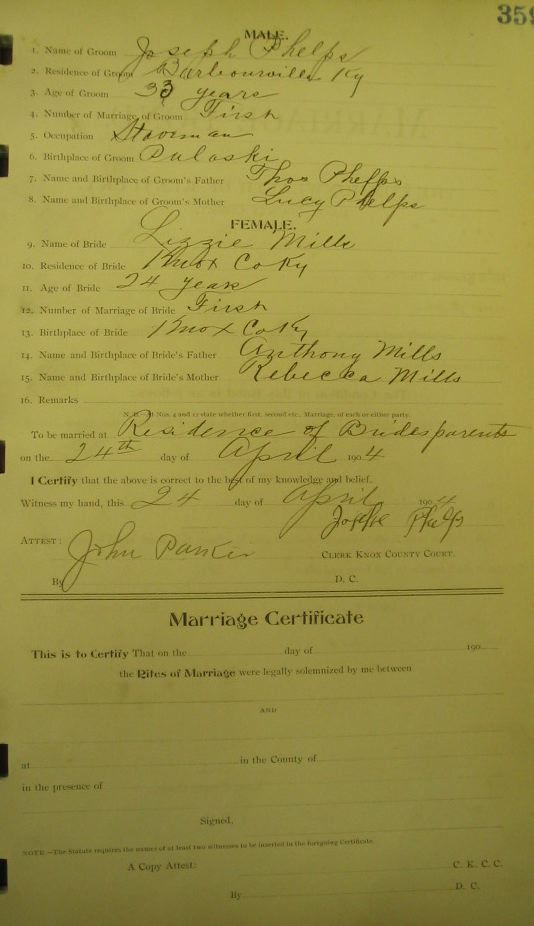 359
MALE.
1. Name of Groom Joseph Phelps
2. Residence of Groom Barbourville Ky
3. Age of Groom 33 years
4. Number of Marriage of Groom First
5. Occupation Staveman
6. Birthplace of Groom Pulaski
7. Name and Birthplace of Groom's Father Thos Phelps
8. Name and Birthplace of Groom's Mother Lucy Phelps
FEMALE.
9. Name of Bride Lizzie Mills
10. Residence of Bride Knox Co Ky
11. Age of Bride 24 years
12. Number of Marriage of Bride First
13. Birthplace of Bride Knox Co Ky
14. Name and Birthplace of Bride's Father Anthony Mills
15. Name and Birthplace of Bride's Mother Rebecca Mills
16. Remarks
N. B. At Nos. 4 and 12 state whether first, second etc., Marriage, of each or either party.
To be married at Residence of Brides parents
on the 24th day of April 1904
I Certify that the above is correct to the best of my knowledge and belief.
Witness my hand, this 24 day of April 1904
Joseph Phelps
ATTEST: John Parker CLERK KNOX COUNTY COURT.
By D. C.
Marriage Certificate
This is to Certify That on the day of 190
the Rites of Marriage were legally solemnized by me between
AND
at in the County of
in the presence of
Signed,
NOTE.—The Statute requires the names of at least two witnesses to be inserted in the foregoing Certificate.
A Copy Attest: C. K. C. C.
By D. C.